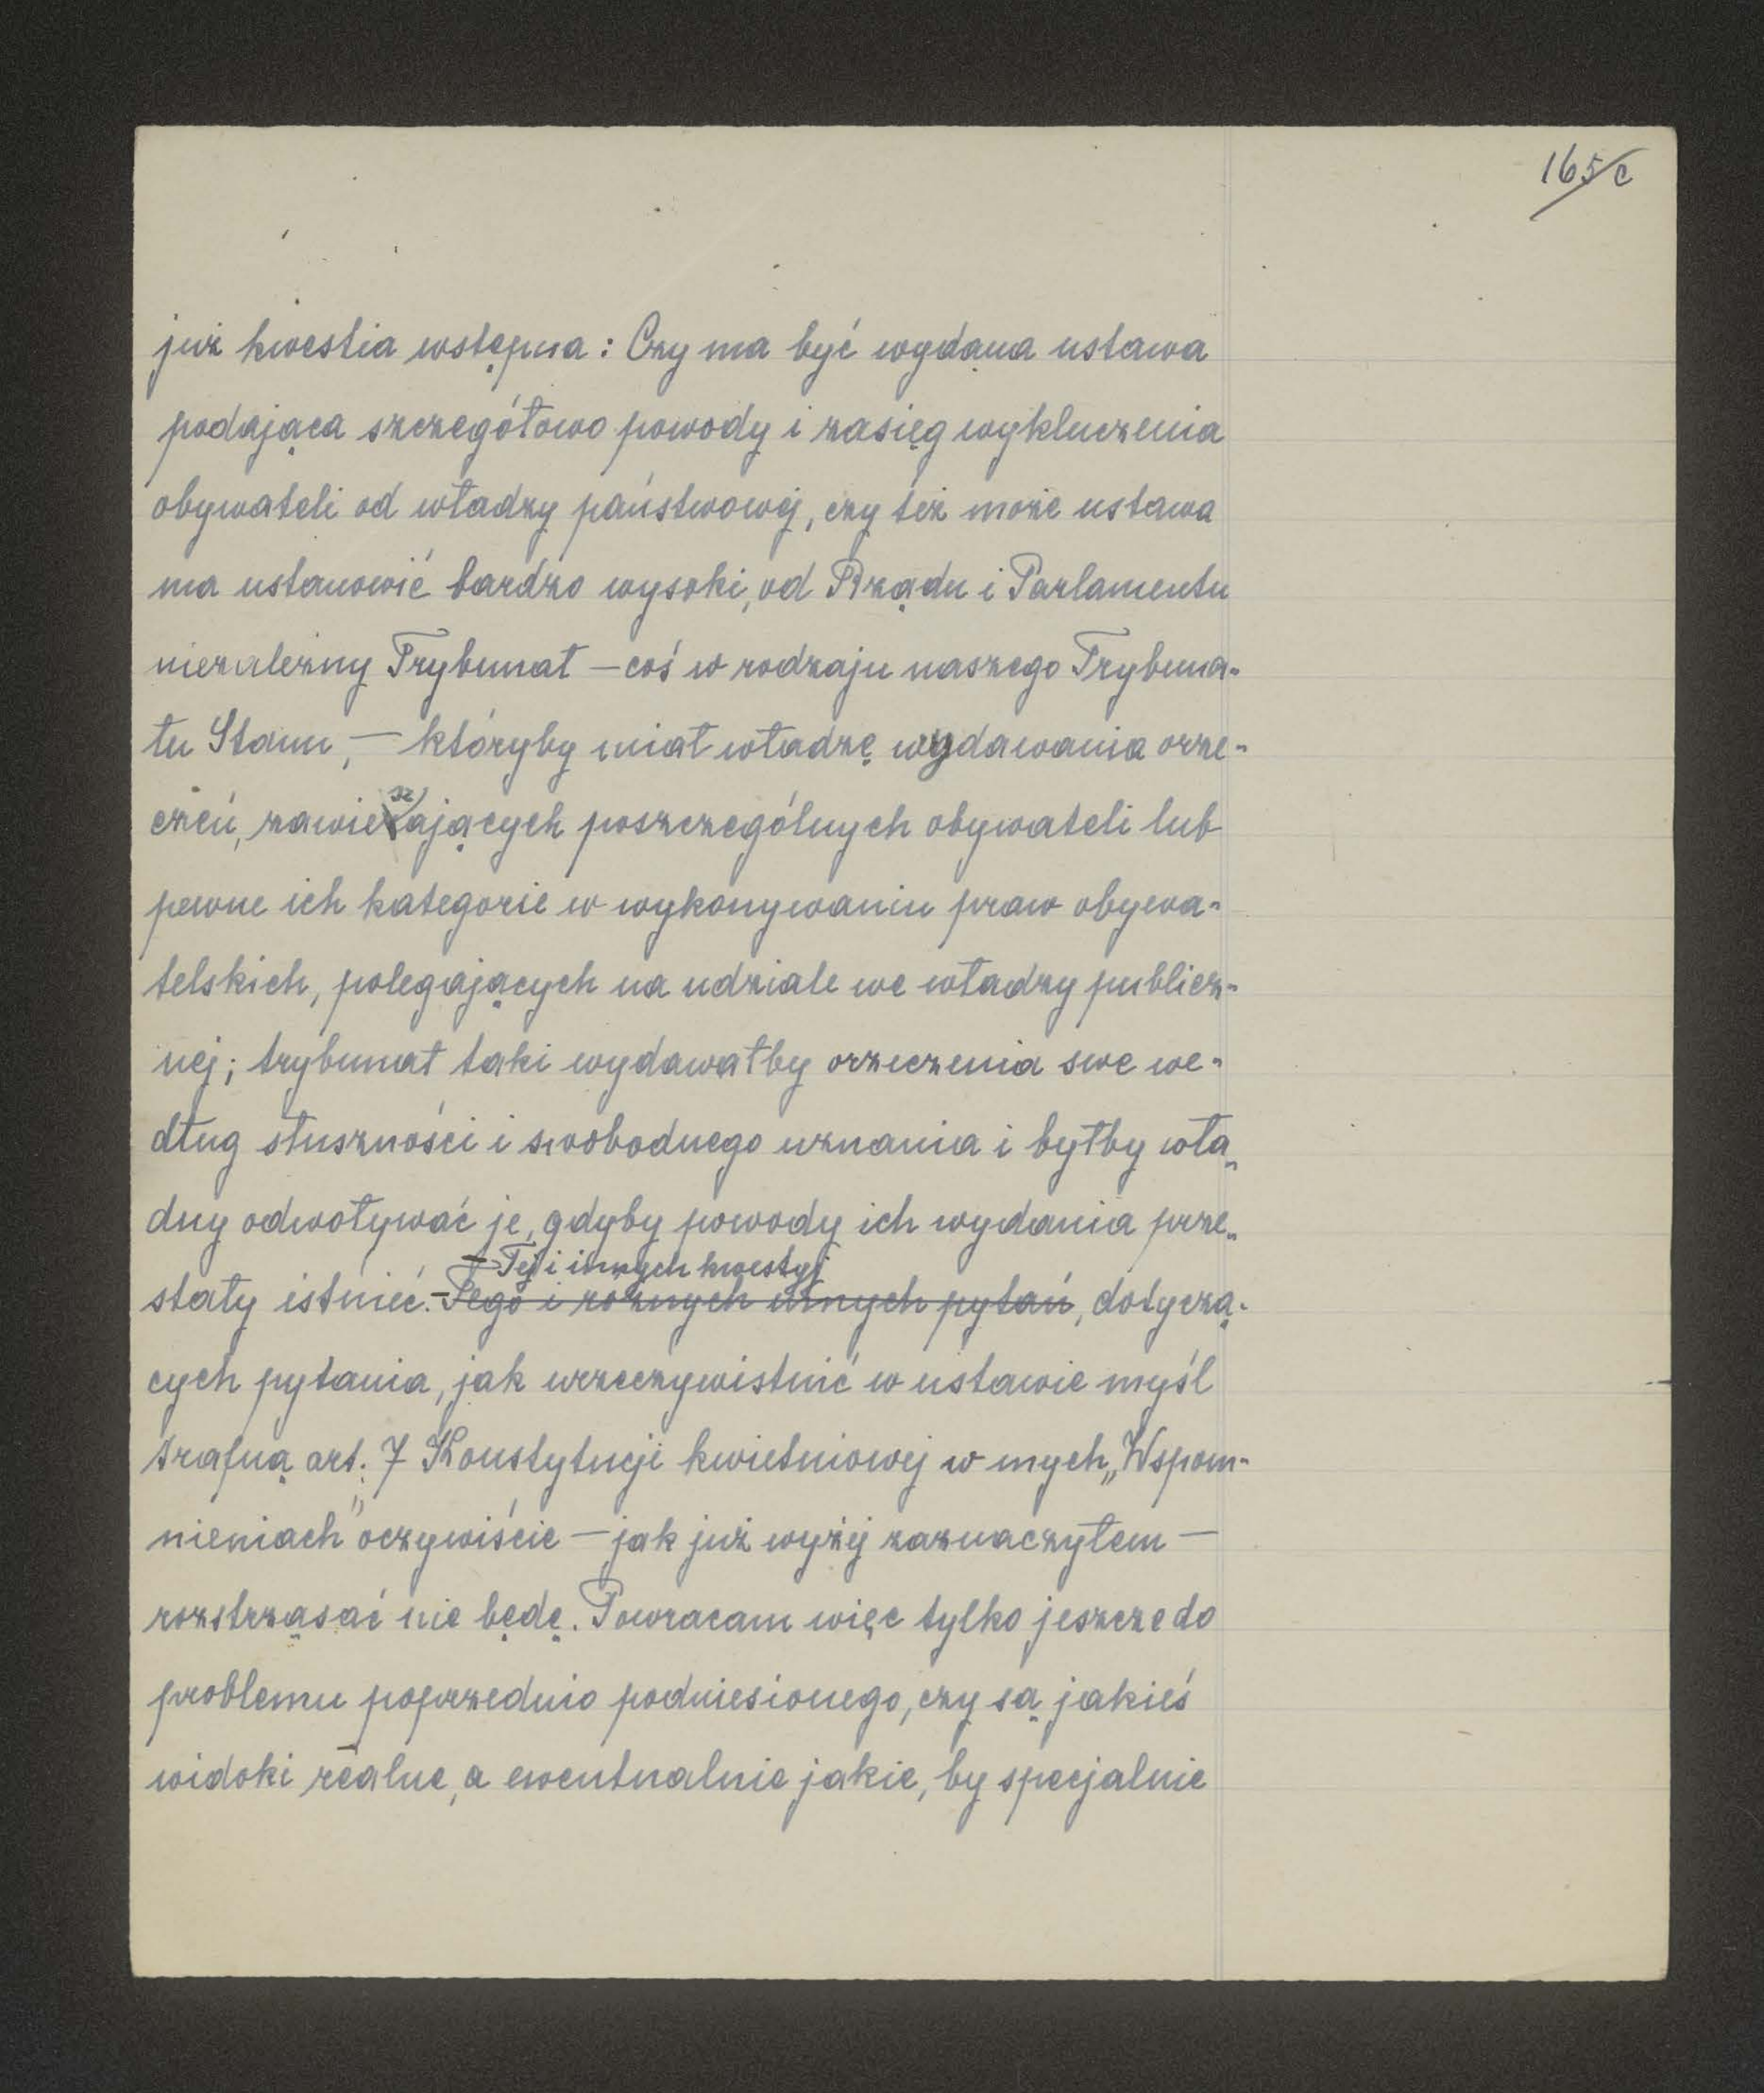 165/c
już kwestia wstępna: Czy ma być wydana ustawa
podająca szczegółowo powody i zasięg wykluczenia
obywateli od władzy państwowej, czy też może ustawa
ma ustanowić bardzo wysoki, od Rządu i Parlamentu
niezależny Trybunał — coś w rodzaju naszego Trybuna-
łu Stanu, — któryby miał władzę wydawania orze-
czeń, zawieszających poszczególnych obywateli lub
pewne ich kategorie w wykonywaniu praw obywa-
telskich, polegających na udziale we władzy publicz-
nej; trybunał taki wydawałby orzeczenia swe we-
dług słuszności i swobodnego uznania i byłby wła-
dny odwoływać je, gdyby powody ich wydania prze-
— Tej i innych kwestyj
stały istnieć. — Tego i różnych innych pytań, dotyczą-
cych pytania, jak urzeczywistnić w ustawie myśl
trafną art. 7 Konstytucji kwietniowej w mych „Wspom-
nieniach" oczywiście — jak już wyżej zaznaczyłem —
roztrząsać nie będę. Powracam więc tylko jeszcze do
problemu poprzednio podniesionego, czy są jakieś
widoki realne, a ewentualnie jakie, by specjalnie